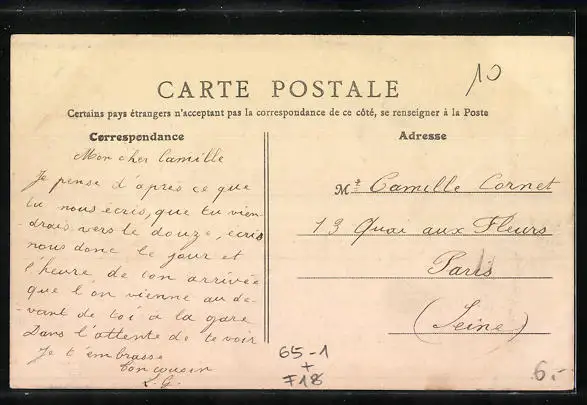 10
CARTE POSTALE
Certains pays étrangers n'acceptant pas la correspondance de ce côté, se renseigner à la Poste
Correspondance
Mon cher Camille
Je pense d'après ce que
tu nous écris, que tu vien-
-drais vers le douze, écris
nous donc le jour et
l'heure de ton arrivée
que l'on vienne au de-
-vant de toi à la gare
Dans l'attente de te voir
Je t'embrasse
ton cousin
L.G.
Adresse
Mr Camille Cornet
13 Quai aux Fleurs
Paris
(Seine)
65-1
+
F18
6.-